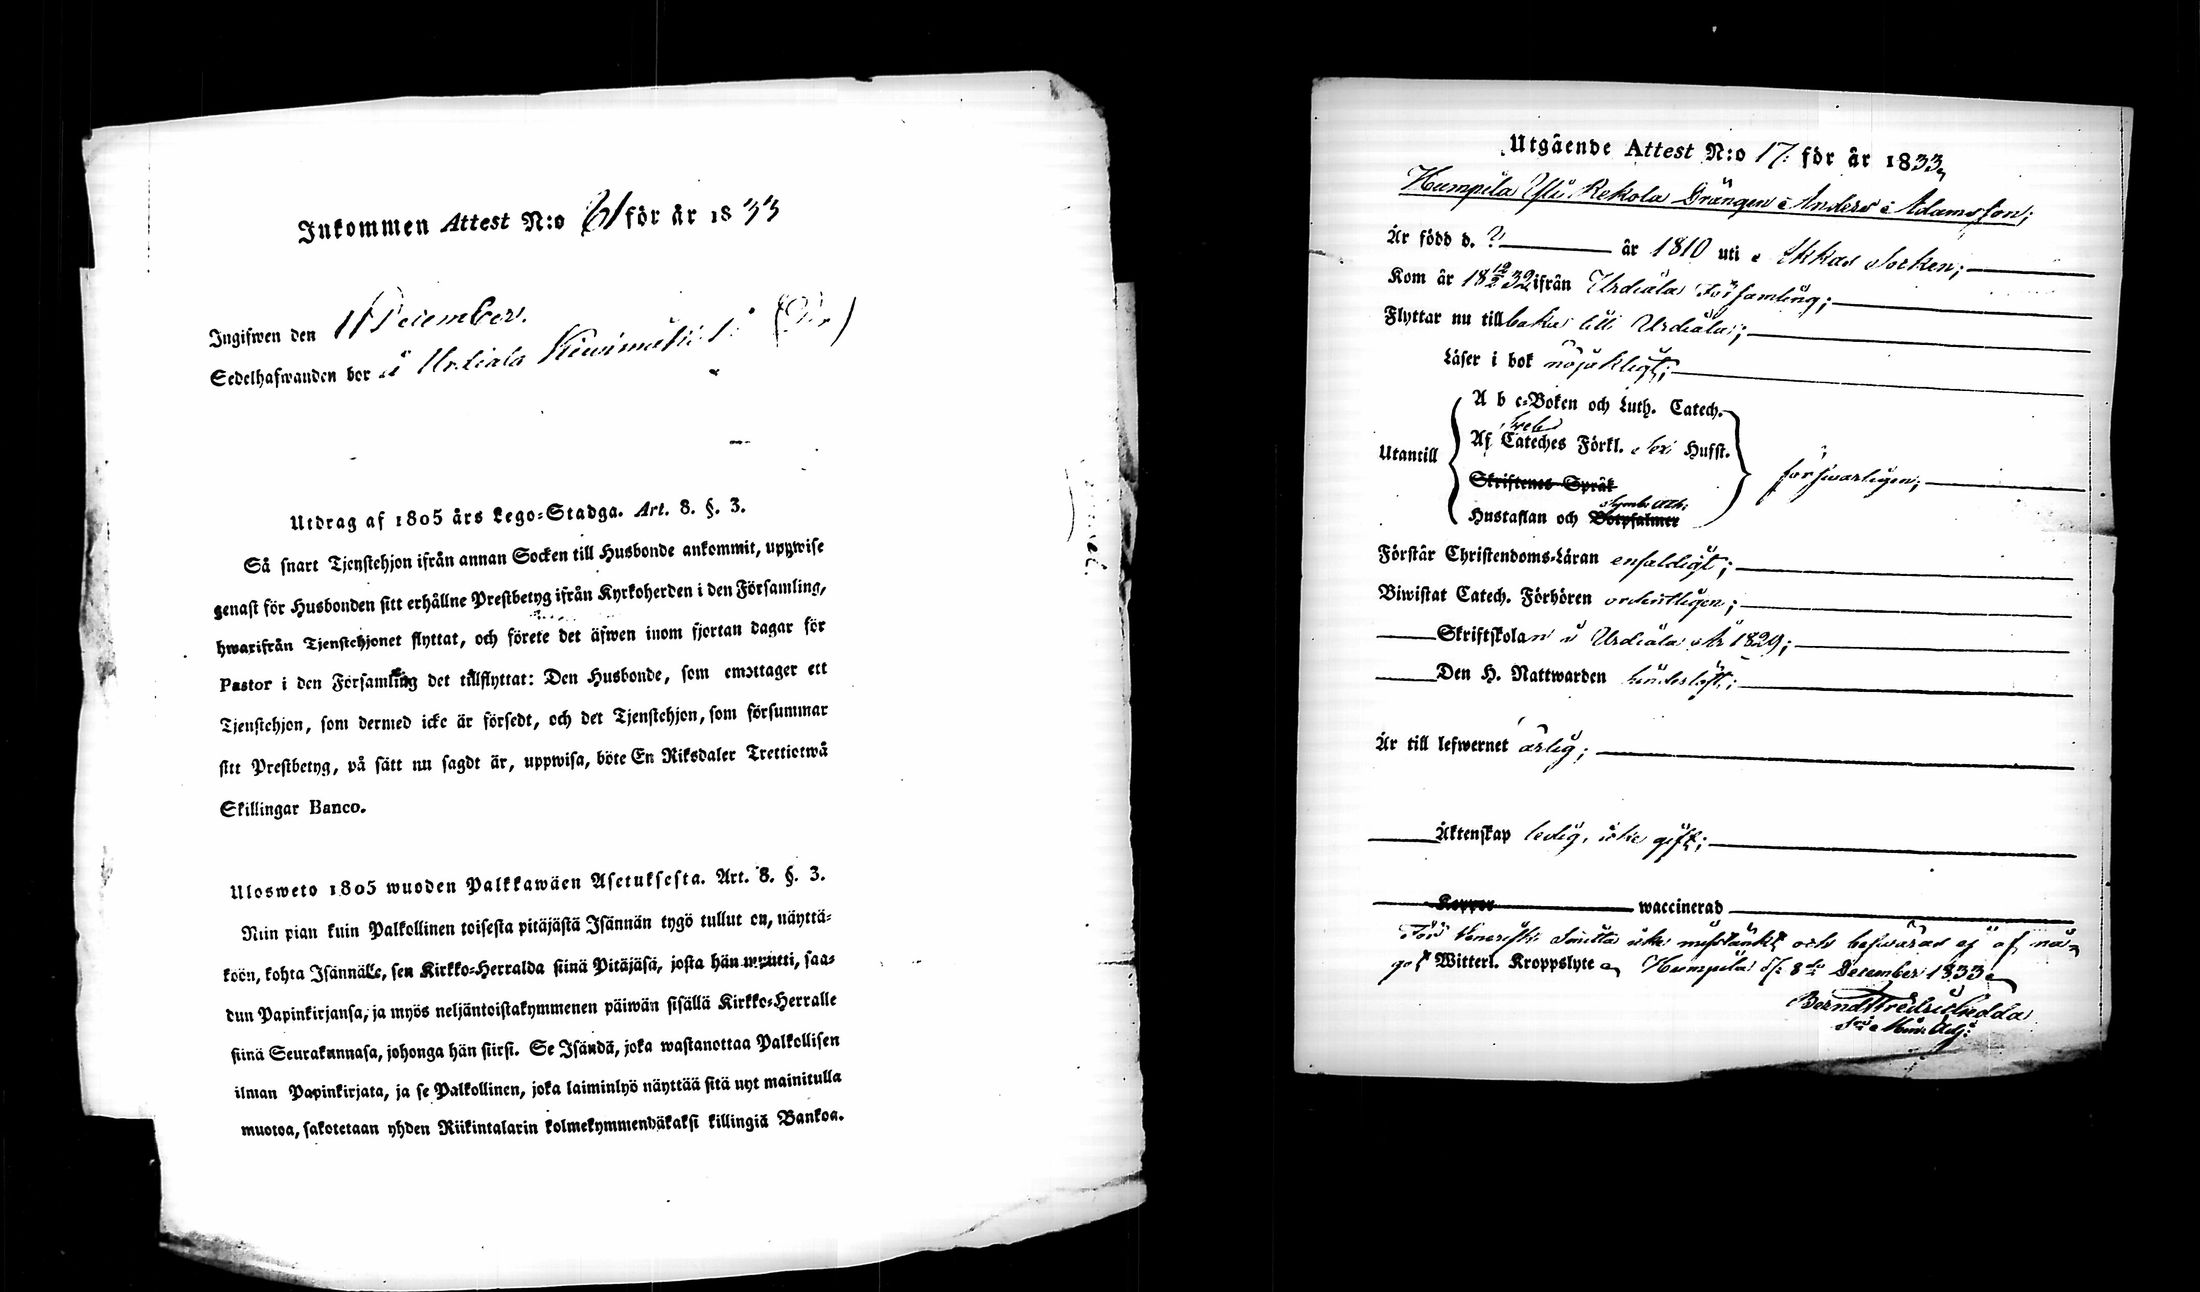 Inkommen Attest N:o 61 för år 1833
Ingifwen den 11 December.
Sedelhafwanden bor i Urdiala
Utdrag af 1805 års Lego-Stadga. Art. 8. §. 3.
Så snart Tjenstehjon ifrån annan Socken till Husbonde ankommit, uppwise
genast för Husbonden sitt erhållne Prestbetyg ifrån Kyrkoherden i den Församling,
hwarifrån Tjenstehjonet flyttat, och förete det äfwen inom fjortan dagar för
Pastor i den Församling det tillflyttat: Den Husbonde, som emottager ett
Tjenstehjon, som dermed icke är försedt, och det Tjenstehjon, som försummar
sitt Prestbetyg, på sätt nu sagdt är, uppwisa, böte En Riksdaler Trettiotwå
Skillingar Banco.
Ulosweto 1805 wuoden Palkkawäen Asetuksesta. Art. 8. §. 3.
Niin pian kuin Palkollinen toisesta pitäjästä Isännän tygö tullut on, näyttä-
köön, kohta Isännälle, sen Kirkko-Herralda siinä Pitäjäsä, josta hän muutti, saa-
dun Papinkirjansa, ja myös neljäntoistakymmenen päiwän sisällä Kirkko-Herralle
siinä Seurakunnasa, johonga hän siirsi. Se Isändä, joka wastanottaa Palkollisen
ilman Papinkirjata, ja se Palkollinen, joka laiminlyö näyttää sitä nyt mainitulla
muotoa, sakotetaan yhden Riikintalarin kolmekymmendäkaksi killingiä Bankoa.
Utgående Attest N:o 17. för år 1833
Humpila Yli Rekola Drängen Anders Adamsson;
Är född d. ? år 1810 uti Akkas Socken;
Kom år 18 12/2 32 ifrån Urdiala Församling;
Flyttar nu tillbaka till Urdiala;
Läser i bok nöjaktligt;
A b c-Boken och Luth. Catech.
Sveb
Utantill Af Cateches Förkl. Hufst. försvarligen;
Skriftenes Språk
Symb. Ath.
Hustaflan och Botpsalmer
Förstår Christendoms-Läran enfaldigt;
Biwistat Catech. Förhören ordentligen;
Skriftskolan i Urdiala år 1829;
Den H. Nattwarden
Är till lefwernet ärlig;
Äktenskap ledig, icke gift;
Koppor waccinerad
För Venerisk Smitta icke misstänkt och beswäras ej af nå-
got Witterl. Kroppslyte Humpila d. 8de December 1833